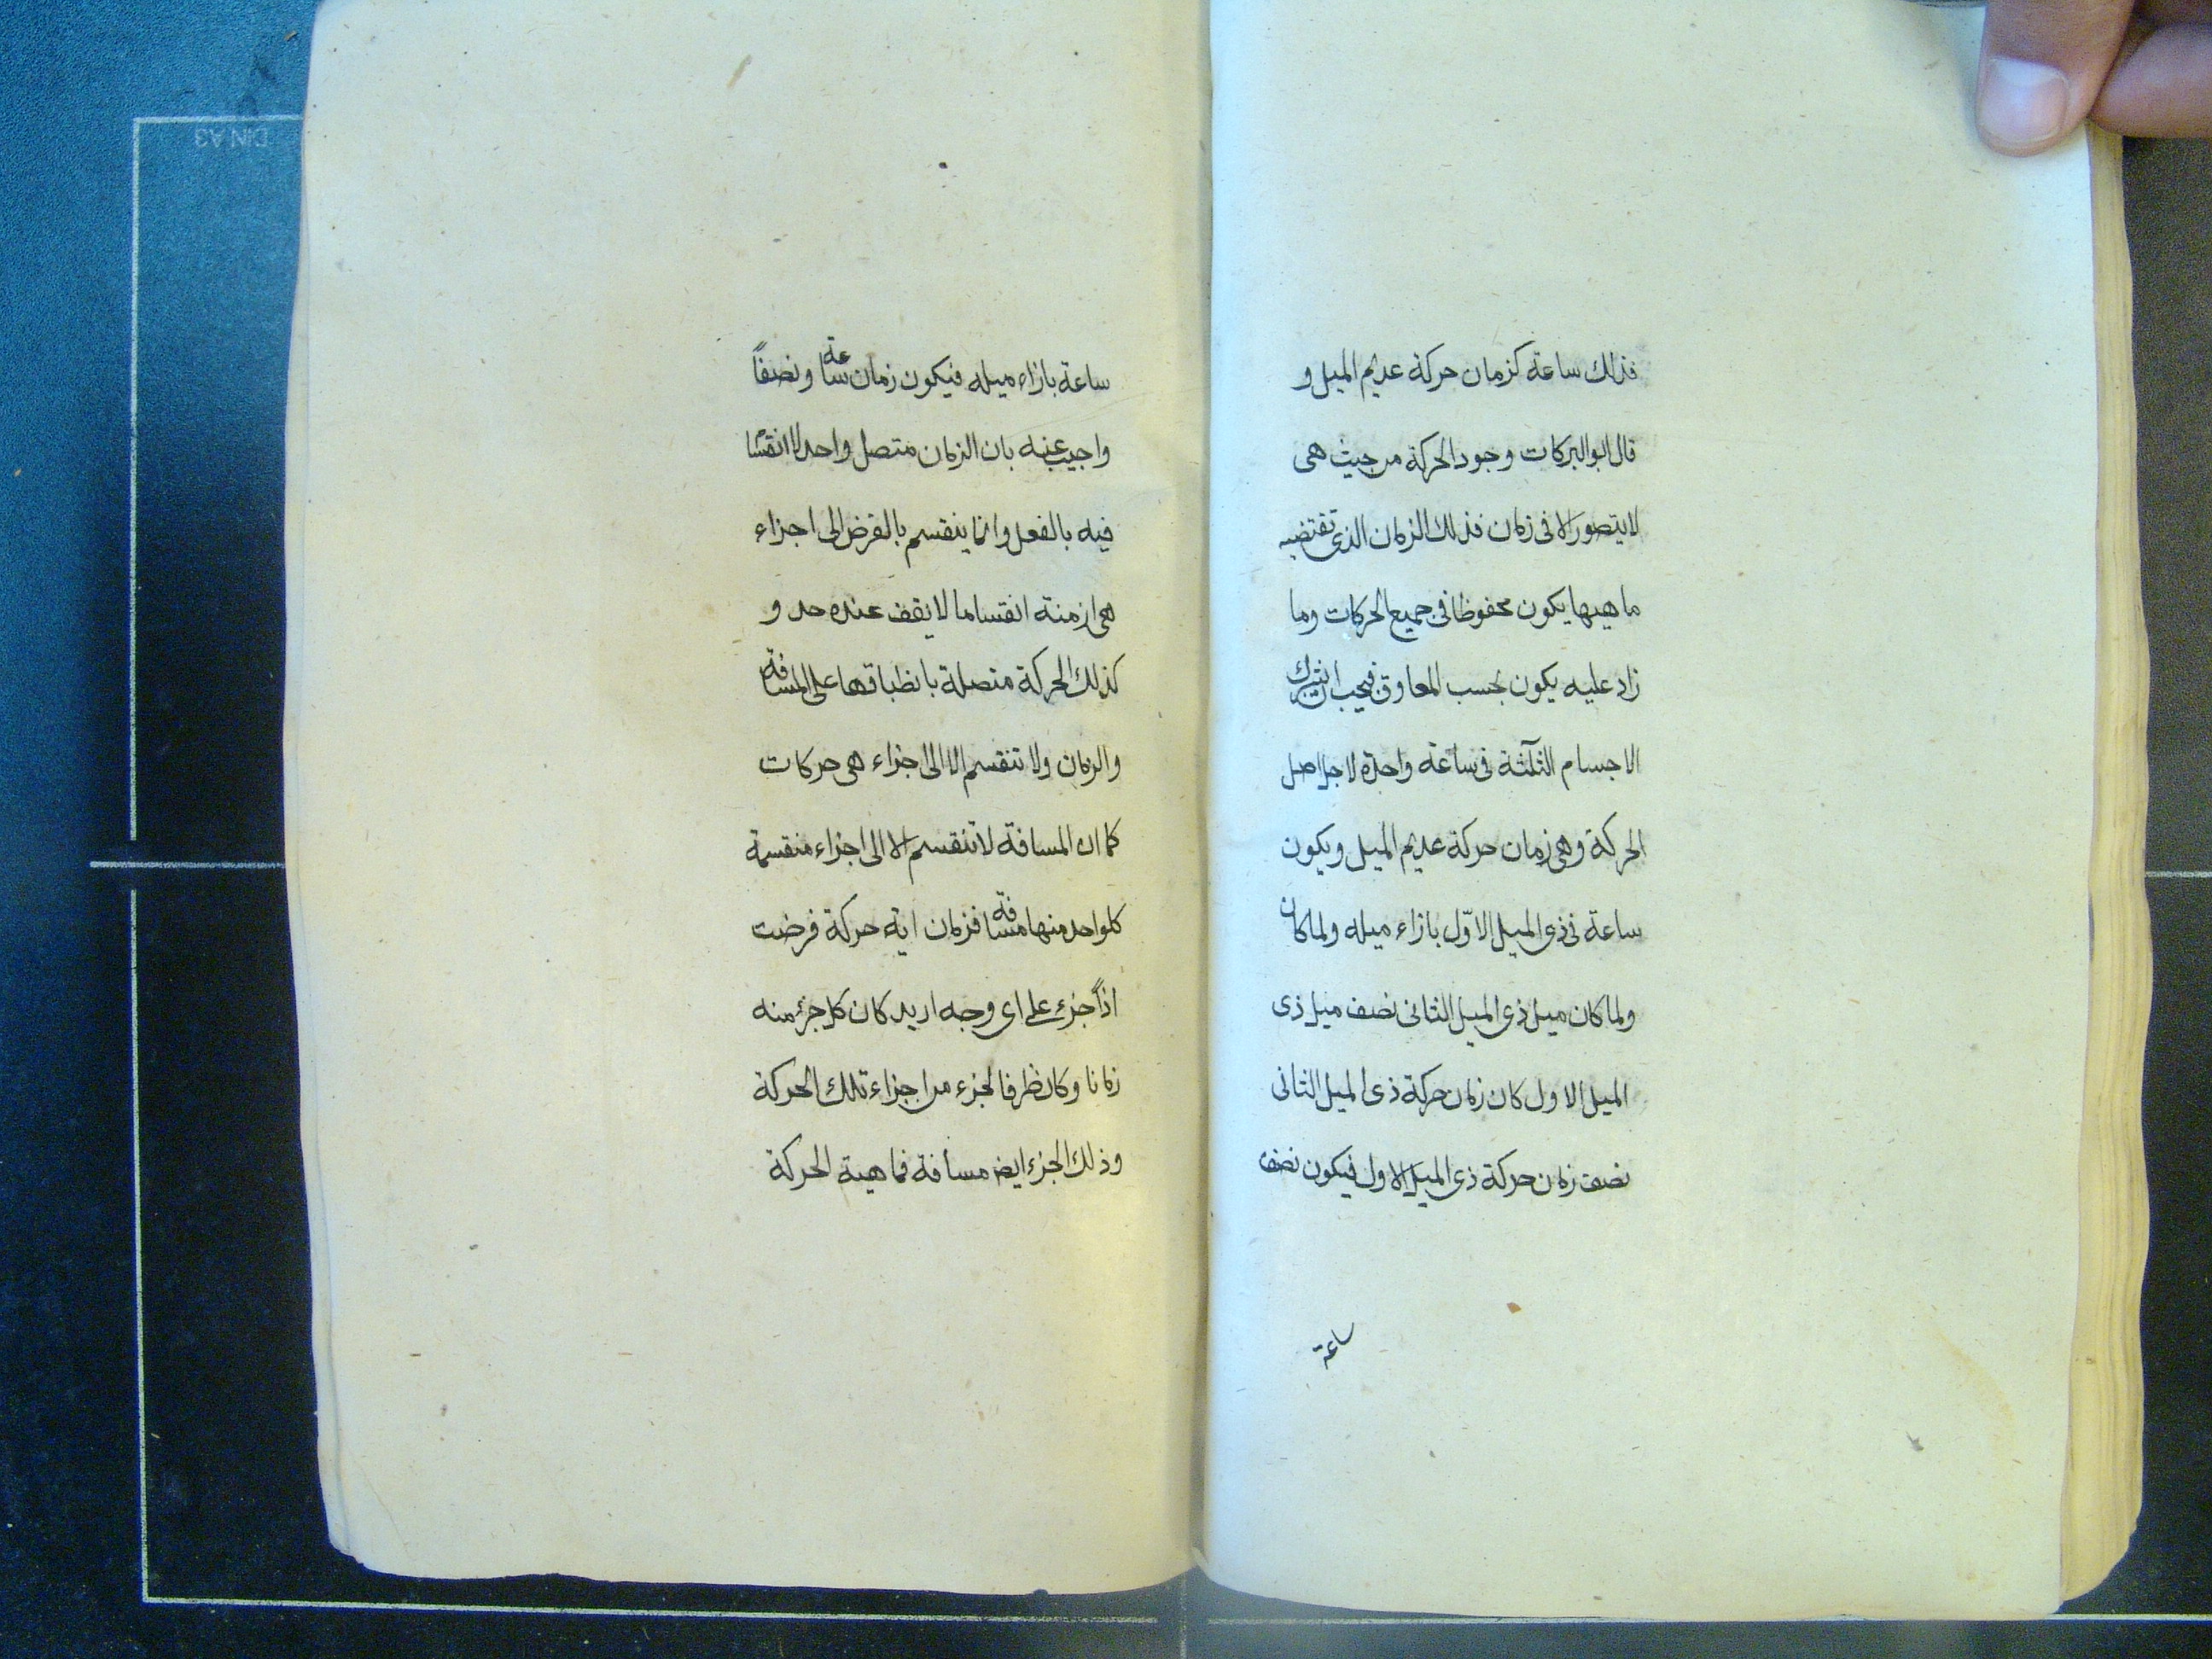 فذلك ساعة كزمان حركة عديم الميل و
قال ابو البركات وجود الحركة من حيث هى
لا يتصور الا فى زمان فذلك الزمان الذى تقتضيه
ماهيتها يكون محفوظا فى جميع الحركات وما
زاد عليه يكون بحسب المعاوق فيجب ان يشترك
الاجسام الثلثة فى ساعة واحدة لاجل اصل
الحركة وهى زمان حركة عديم الميل ويكون
ساعة فى ذى الميل الاوّل بازاء ميله ولما كان
ولما كان ميل ذى الميل الثانى نصف ميل ذى
الميل الاول كان زمان حركة ذى الميل الثانى
نصف زمان حركة ذى الميل الاول فيكون نصف
ساعة
ساعة بازاء ميله فيكون زمان ساعة ونصفاً
واجيب عنه بان الزمان متصل واحد لا انقسام
فيه بالفعل وانما ينقسم بالفرض الى اجزاء
هى ازمنة انقساما لا يقف عنده حد و
كذلك الحركة متصلة بانطباقها على المسافة
والزمان ولا تنقسم الا الى اجزاء هى حركات
كما ان المسافة لا تنقسم الا الى اجزاء منقسمة
كلواحد منها مسافة فزمان اية حركة فرضت
اذا جزء على اى وجه اريد كان كل جزء منه
زمانا وكان ظرفا لجزء من اجزاء تلك الحركة
وذلك الجزء ايض مسافة فماهية الحركة